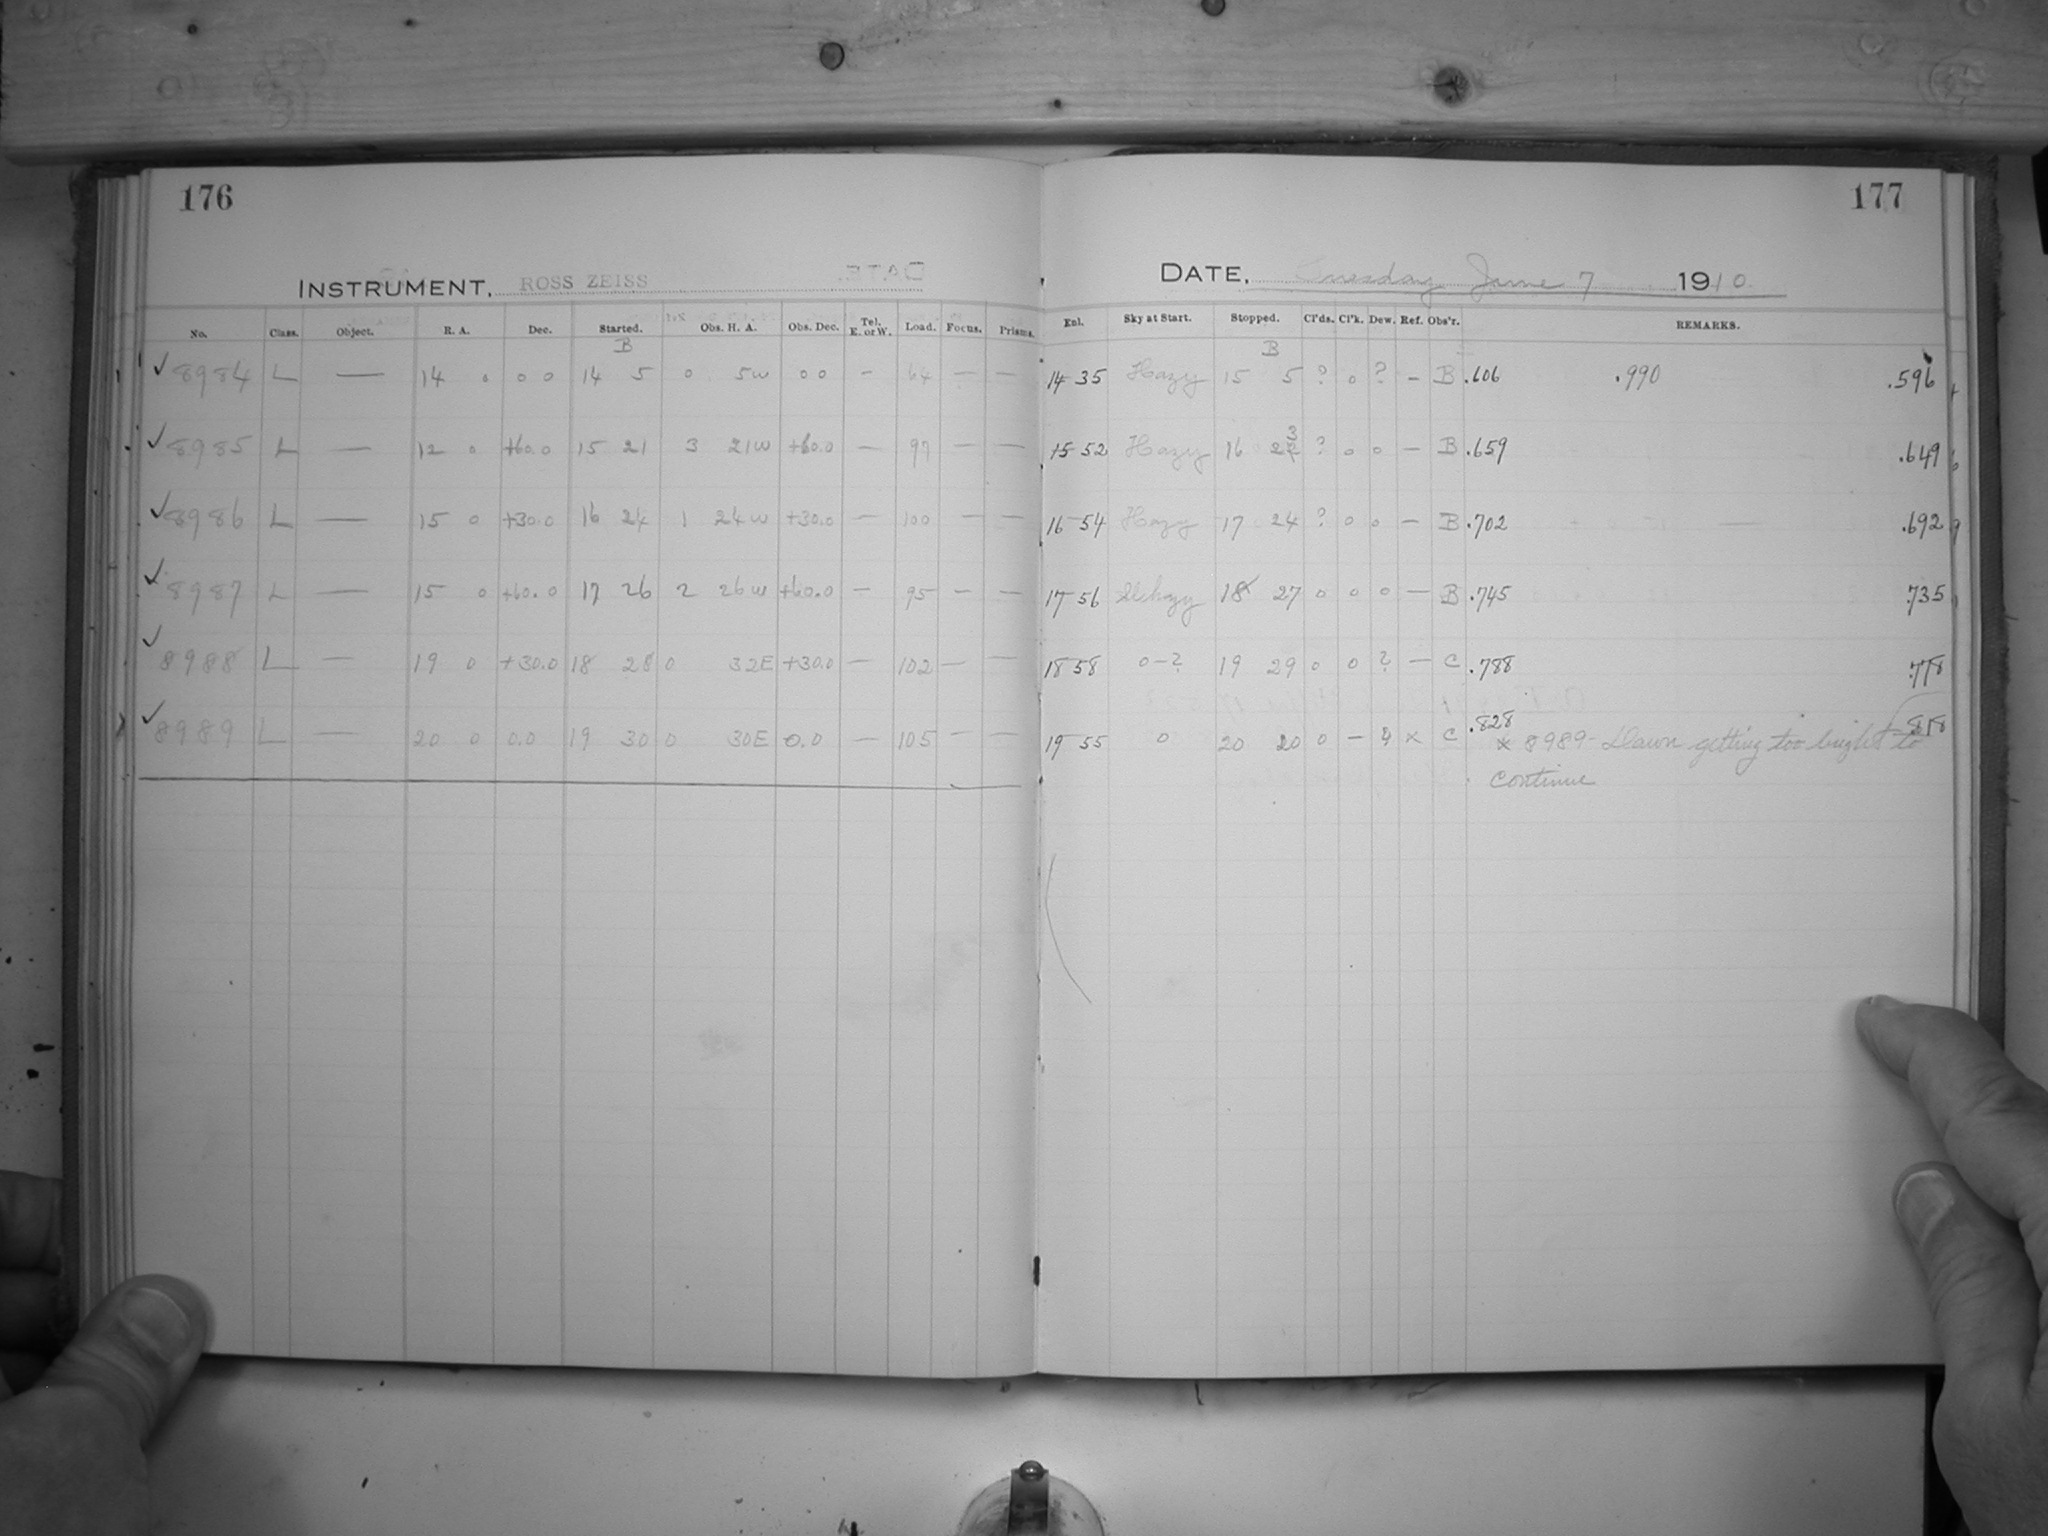 176
INSTRUMENT, ROSS ZEISS
No. Class. Object. R. A. Dec. Started. Obs. H. A. Obs. Dec. Tel. E. or W. Load. Focus. Prisms.
B
✓ 8984 L — 14 0 0 0 14 5 0 5W 0 0 — 64 — —
✓ 8985 L — 12 0 +60.0 15 21 3 21W +60.0 — 97 — —
✓ 8986 L — 15 0 +30.0 16 24 1 24W +30.0 — 100 — —
✓ 8987 L — 15 0 +60.0 17 26 2 26W +60.0 — 95 — —
✓ 8988 L — 19 0 +30.0 18 28 0 32E +30.0 — 102 — —
✓ 8989 L — 20 0 0.0 19 30 0 30E 0.0 — 105 — —
177
DATE, Tuesday June 7 1910
Enl. Sky at Start. Stopped. Cl'ds. Cl'k. Dew. Ref. Obs'r. REMARKS.
B
14 35 Hazy 15 5 ? 0 ? — B .606 .990 .596
15 52 Hazy 16 23 ? 0 0 — B .659 .649
16 54 Hazy 17 24 ? 0 0 — B .702 .692
17 56 18 27 0 0 0 — B .745 .735
18 58 0-? 19 29 0 0 ? — C .788 .778
19 55 0 20 20 0 — x C .828 .818
x 8989 - Dawn getting too bright to
continue